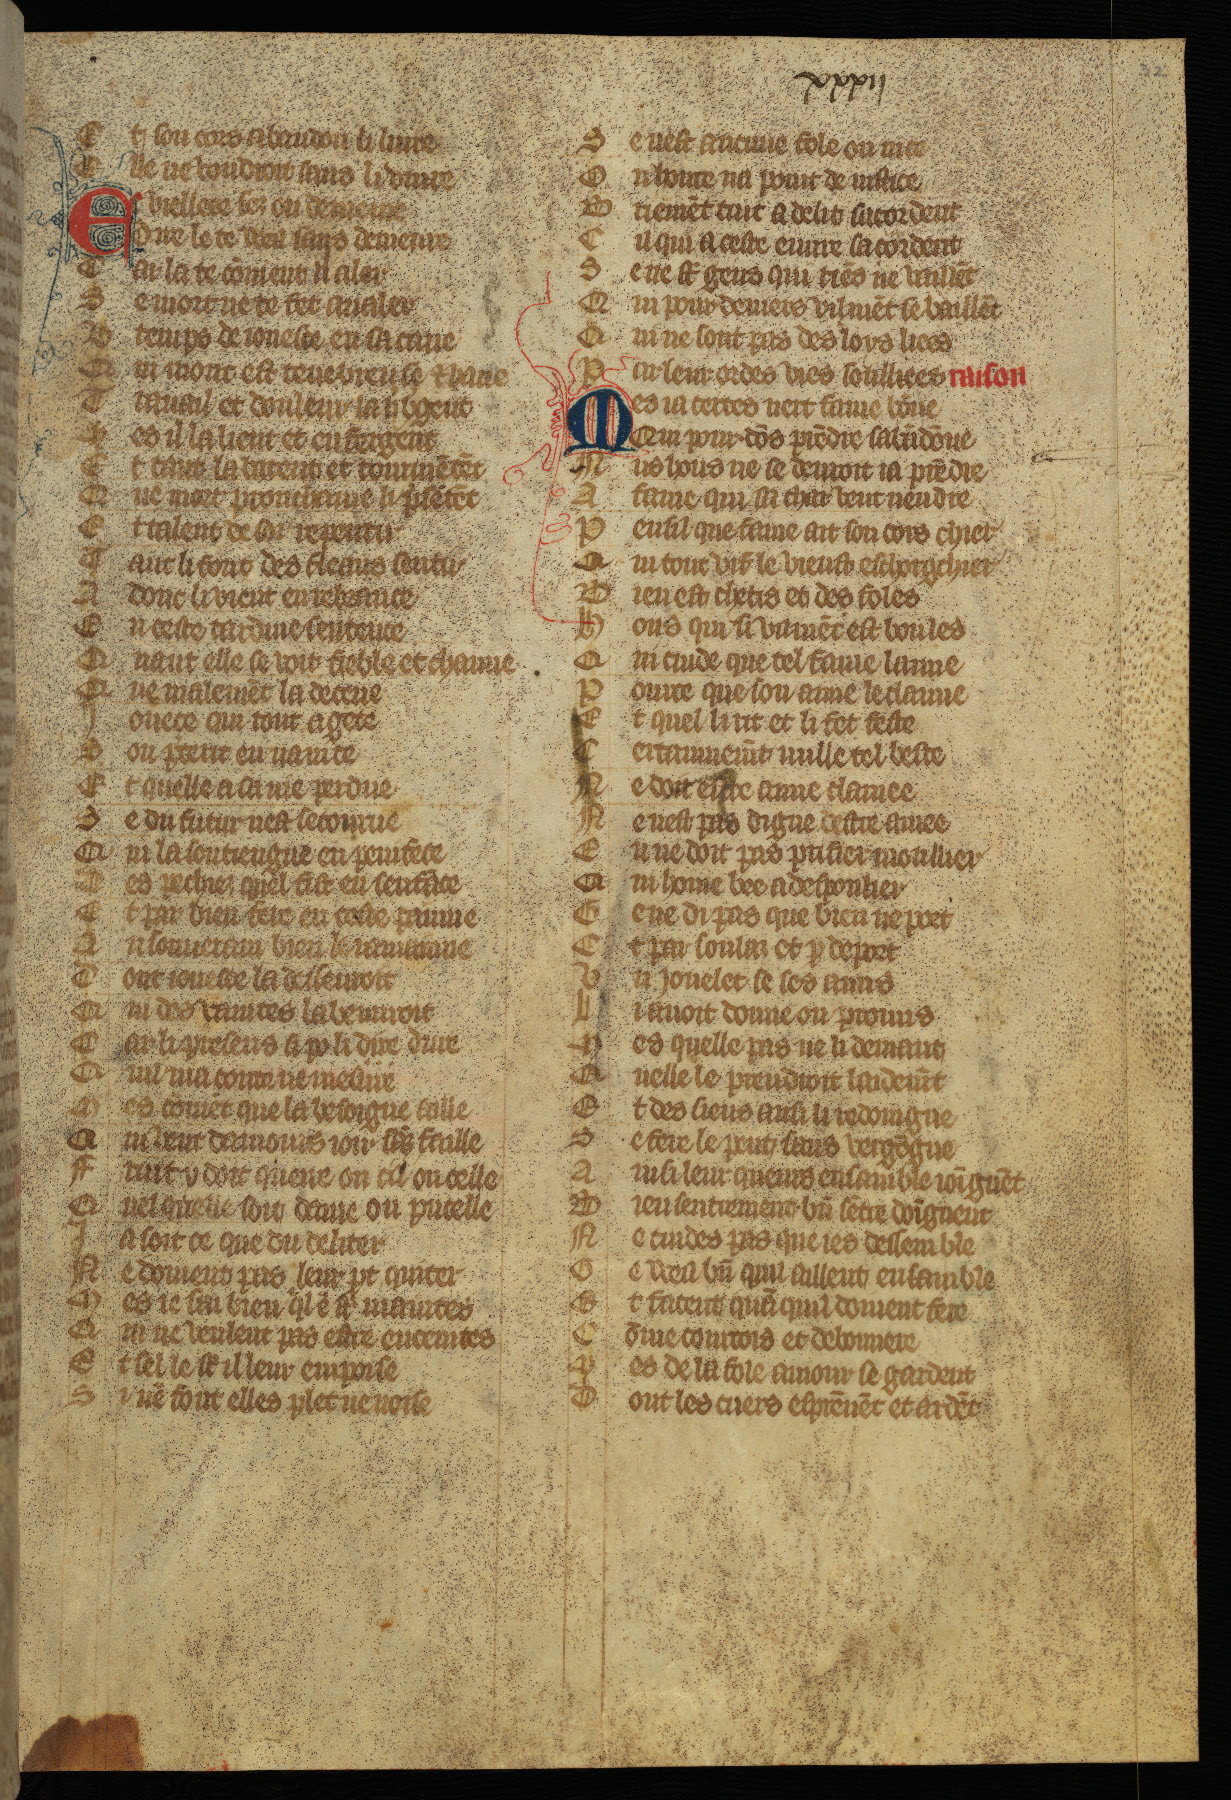 xxxii
32
E t son cors abandon li liure
E lle ne voudroit sans li viure
E t viellece sez ou demeure
D ire le te veil sans demeure
C ar la te cōuient il aler
S e mort ne te fet aualer
O u temps de ionesce en sa caue
Q ui mont est tenebreuse et haue
T rauail et douleur la hbgent
M es il la lient et enfergent
E t tant la batent et tourmētēt
Q ue mort prouchaine li presētēt
E t talent de soi repentir
T ant li font des fleaus sentir
A donc li vient en remembrance
E n ceste tardiue sentence
Q uant elle se voit fieble et chanue
Q ue malemēt la deceue
J onece qui tout a gete
S on preterit en vanite
E t quelle a sa vie perdue
S e du futur nest secourue
Q ui la soutiengne en penitēce
D es pechiez quel fist en senfāce
E t par bien fere en ceste paine
A u souuerain bien la ramaine
D ont ionesce la desseuroit
Q ui des vanites labeuuroit
C ar li presens si po li dure dure
Q uil ni a conte ne mesure
M es comēt que la besoigne aille
Q ui veut damours ioir sāz faille
F ruit y doit querre ou cil ou celle
Q uel quelle soit dame ou pucelle
J a soit ce que du deliter
N e doiuent pas leur pt quiter
M es ie sai bien quil ē sōt maintes
Q ui ne veulent pas estre encaintes
E t sel le sōt il leur empoise
S i nē font elles plet ne noise
S e nest aucune fole ou nice
O u honte na point de iustice
B riemēt tuit a delit sacordent
C il qui a ceste euure sacordent
S e ne sōt gens qui riēs ne vaillēt
Q ui pour deniers vilmēt se baillēt
Q ui ne sont pas des loys liees
P ar leur ordes vies souilliees raison
M es ia certes niert fame bōne
Q ui pour dōs prēdre sabādōne
N us hons ne se deuroit ia prēdre
A fame qui sa char veut vendre
P ense il que fame ait son cors chier
Q ui tout vif le vieust escorgchier
B ien est chetis et des foles
H ons qui si vilmēt est boules
Q ui cuide que tel fame laime
P ource que son amie le claime
E t quel li rit et li fet feste
C ertainnemēt nulle tel beste
N e doit estre amie clamee
N e nest pas digne destre amee
E n ne doit pas prisier mouillier
Q ui home bee a despouillier
G e ne di pas que bien ne port
E t par soulaz et p deport
U n Jouelet se ses amis
L i auoit donne ou promis
M es quelle pas ne li demant
Q uelle le prendroit laidemēt
E t des siens ausi li redoingne
S e fere le peut sans vergōgne
A insi leur queurs ensamble ioīgnēt
B ien sentremēt bn̄ sētre doīgnent
N e cuides pas que ies dessemble
G e veil bn̄ quil aillent ensamble
E t facent quāquil doiuent fere
C ōme courtois et debonnere
M es de la fole amour se gardent
D ont les cuers esprenēt et ardēt